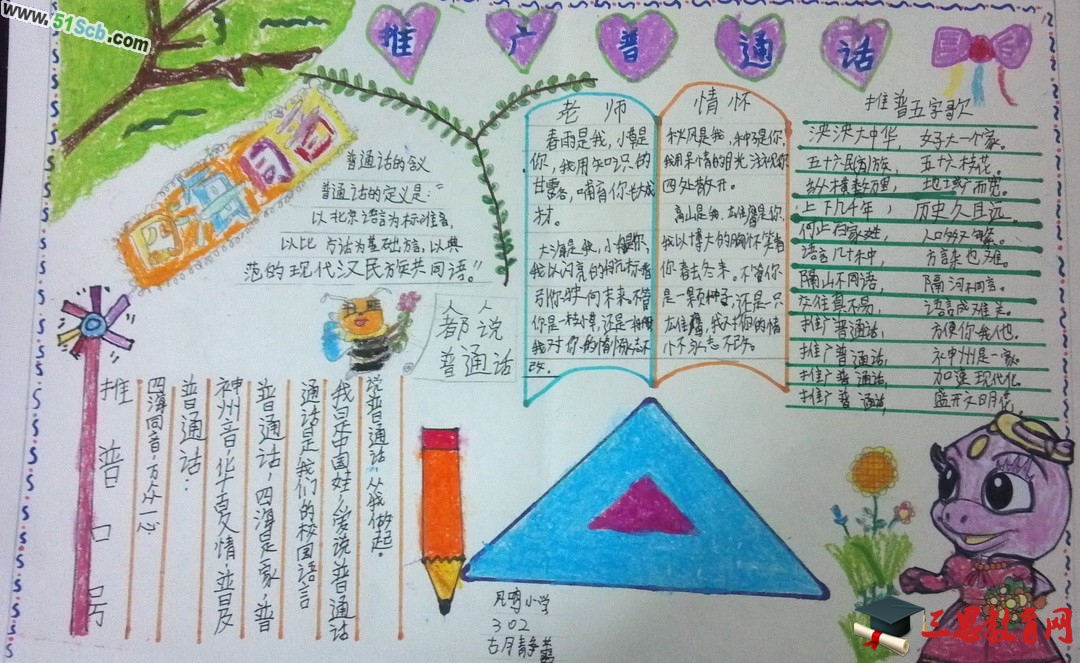 www.51Scb.com
推广普通话
四海同音
普通话的含义
普通话的定义是：“
以北京语言为标准音，
以北 方话为基础方言，以典
范的现代汉民族共同语。”
人人
都说
普通话
老师
春雨是我，小草是
你，我用知识的
甘露，哺育你长大成
材。
大海是我，小船是你，
我以闪亮的航标
引你驶向未来。不管
你是一棵小草，还是一
我对你的情怀永志不
改。
情怀
秋风是我，种子是你，
我用深情的目光，注视你
四处散开。
高山是我，
我以博大的胸怀笑看
你春去冬来。不管你
是一颗种子，还是一只
我对你的情
怀永志不改。
推普五字歌
泱泱大中华， 好大一个家。
五十六民族， 五十六枝花。
纵横数万里， 地域广而宽。
上下几千年， 历史久且远。
何止百家姓， 人口多又繁。
语言几十种， 方言也难。
隔山不同语， 隔河不同言。
交往真不易， 语言成难关。
推广普通话， 方便你我他。
推广普通话， 神州是一家。
推广普通话， 加速现代化。
推广普通话， 盛开文明花。
推普口号
四海同音，万众一心
普通话：
神州音，华夏情，普及
普通话，四海是一家，普
通话是我们的校园语言
我是中国娃，爱说普通话
说普通话，从我做起。
凤鸣小学
302
三思教育网